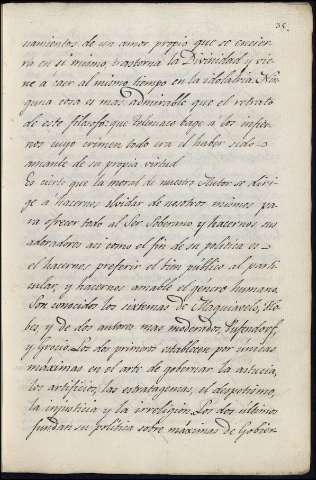 35.
namientos de un amor propio que se encier-
ra en si mismo, trastorna la Divinidad y vie-
ne à caer al mismo tiempo en la idolatria. Nin-
guna cosa es mas admirable que el retrato
de este filosofo que Telemaco bage a los infier-
nos cuyo crimen todo era el haber sido
amante de su propia virtud
Es cierto que la moral de nuestro Autor se diri-
ge a hacernos olvidar de nosotros mismos pa-
ra ofrecer todo al Ser Soberano y hacernos sus
adoradores asi como el fin de su politica es
el hacernos preferir el bien público al parti-
cular, y hacernos amable el género humano.
Son conocidos los sistemas de Maquiavelo, Ho-
bes, y de dos autores mas moderados, Pufendorf,
y Grocio. Los dos primeros establecen por únicas
maximas en el arte de gobernar la astucia,
los artificios, las estratagemas, el despotismo,
la injusticia y la irreligion. Los dos ultimos
fundan su politica sobre máximas de Gobier-